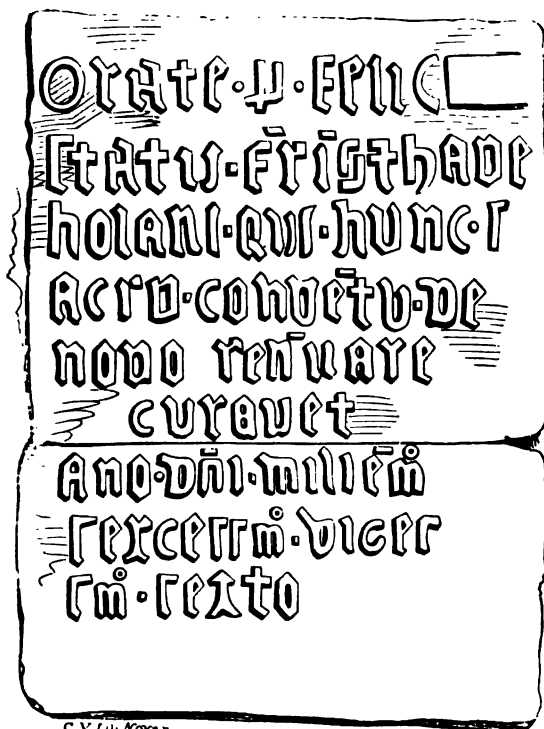 Orate · p · felic
statu · f̄r̄is thade
holani · qui · hunc · s
acru · conuētu · de
nouo ren̄uare
curauet
Ano · dn̄i · millēm̊
sexcessm̊ · viges
sm̊ · sexto